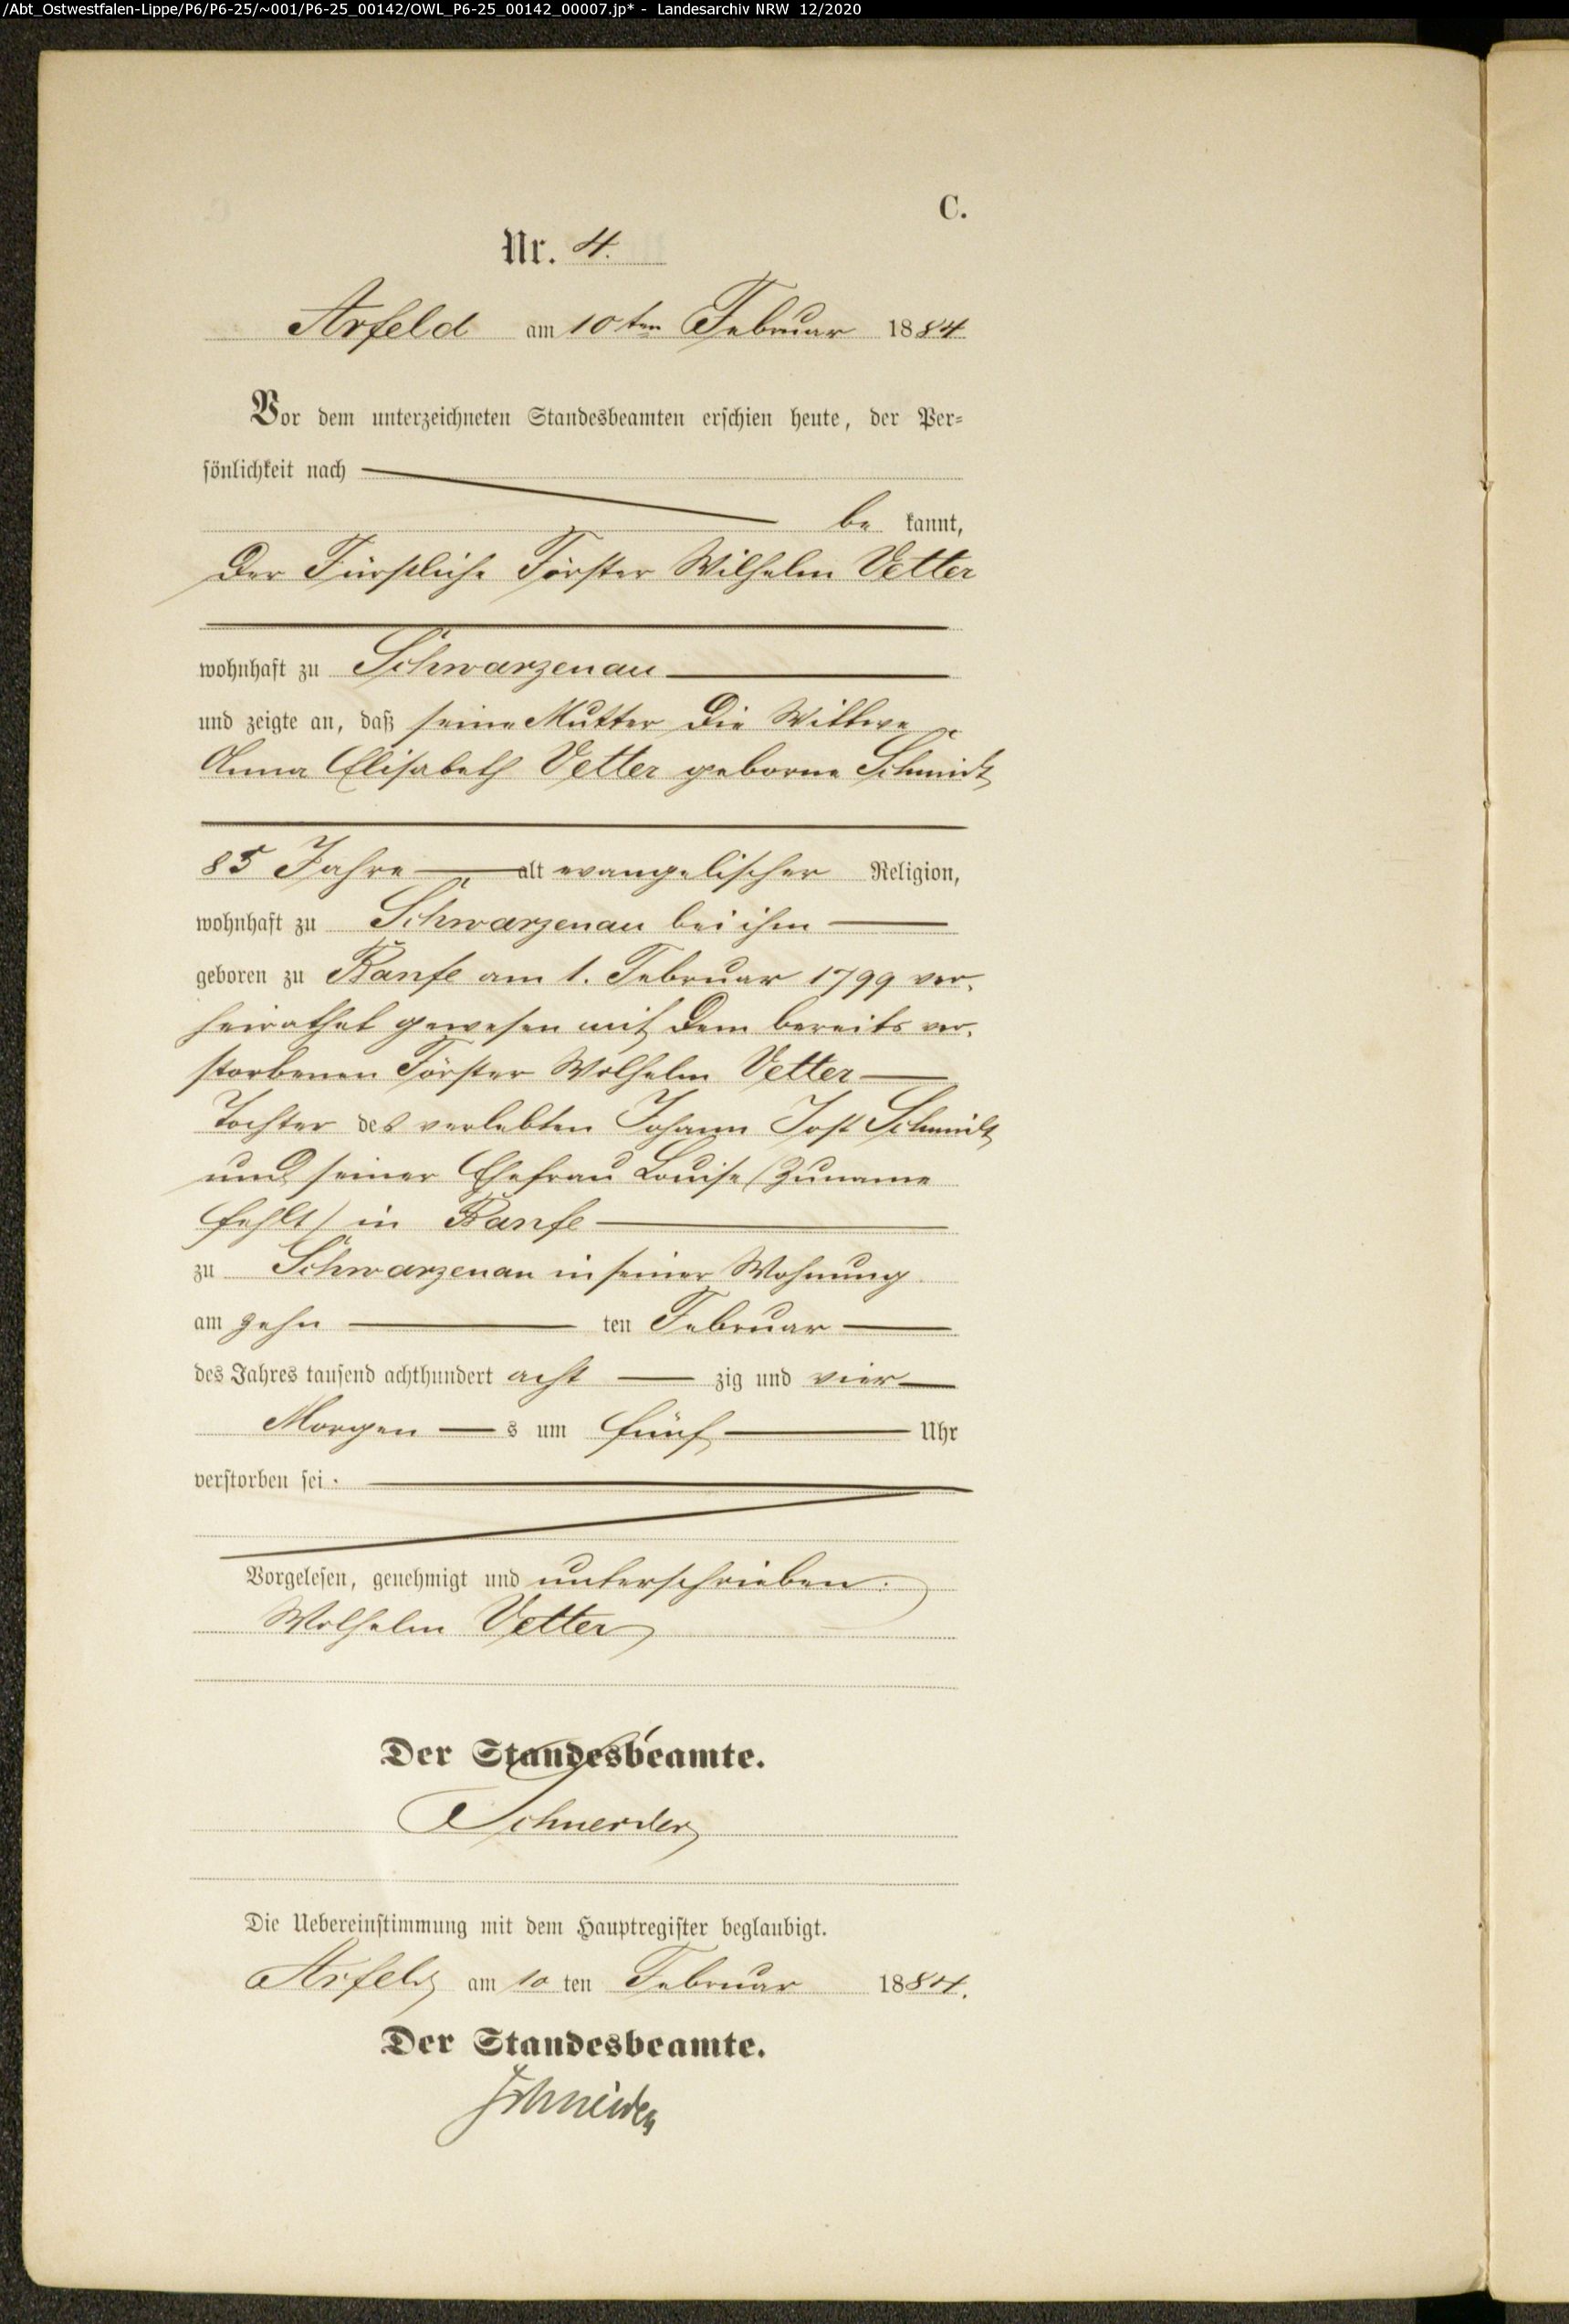 /Abt_Ostwestfalen-Lippe/P6/P6-25/~001/P6-25_00142/OWL_P6-25_00142_00007.jp* - Landesarchiv NRW 12/2020
C.
Nr. 4.
Arfeld am 10ten Februar 1884
Vor dem unterzeichneten Standesbeamten erschien heute, der Per-
sönlichkeit nach
be kannt,
der Fürstliche Förster Wilhelm Vetter
wohnhaft zu Schwarzenau
und zeigte an, daß seine Mutter die Wittwe
Anna Elisabeth Vetter geborne Schmidt
85 Jahre alt evangelischer Religion,
wohnhaft zu Schwarzenau bei ihm
geboren zu Banfe am 1. Februar 1799 ver-
heirathet gewesen mit dem bereits ver-
storbenen Förster Wilhelm Vetter
Tochter des verlebten Johann Jost Schmidt
und seiner Ehefrau Louise (Zuname
fehlt) in Banfe
zu Schwarzenau in seiner Wohnung
am zehn ten Februar
des Jahres tausend achthundert acht zig und vier
Morgen s um fünf Uhr
verstorben sei.
Vorgelesen, genehmigt und unterschrieben.
Wilhelm Vetter
Der Standesbeamte.
Schneider
Die Uebereinstimmung mit dem Hauptregister beglaubigt.
Arfeld am 10 ten Februar 1884.
Der Standesbeamte.
Schneider